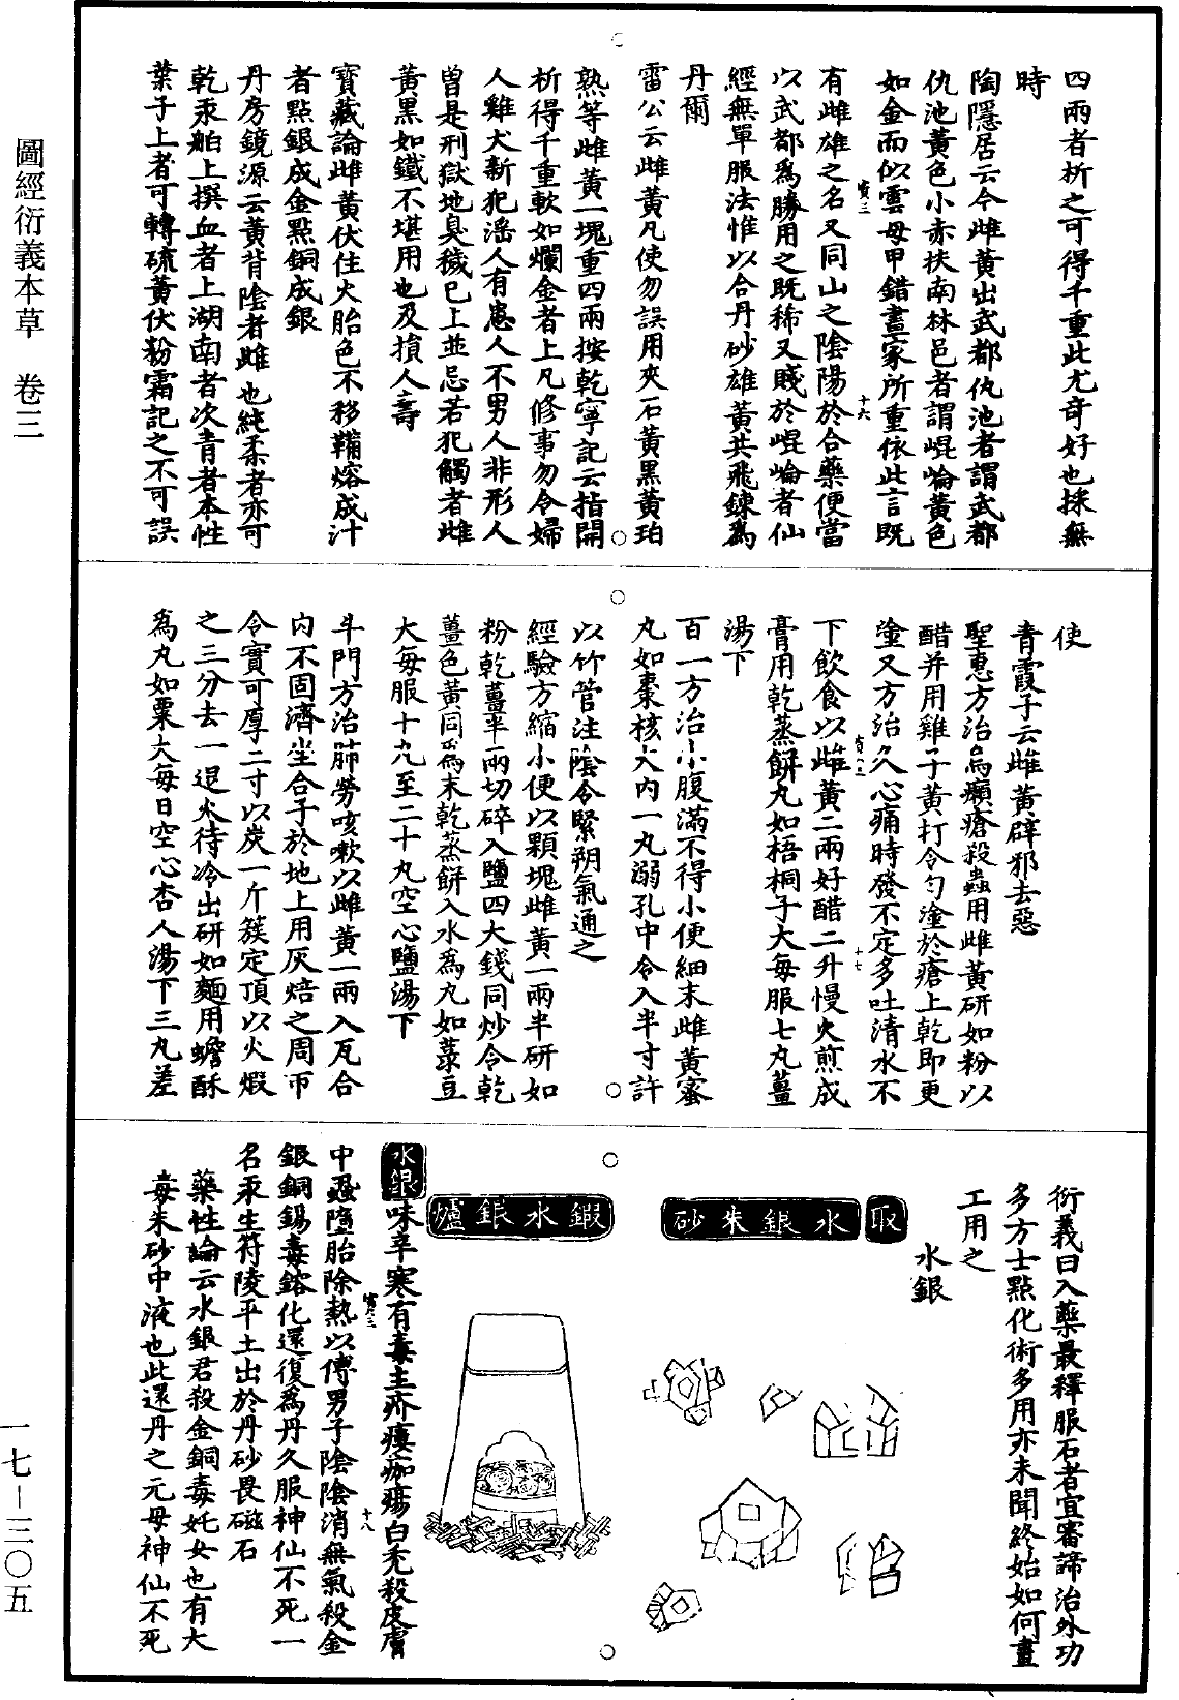 圖經衍義本草　卷三
四兩者析之可得千重此尤奇好也採無
時
陶隱居云今雌黃出武都仇池者謂武都
仇池黃色小赤扶南林邑者謂崐崘黃色
如金而似雲母甲錯畫家所重依此言既
有雌雄之名又同山之陰陽於合藥便當
以武都為勝用之既稀又賤於崐崘者仙
經無單服法惟以合丹砂雄黃共飛鍊為
丹爾
雷公云雌黃凡使勿誤用夾石黃黑黃珀
熟等雌黃一塊重四兩按乾寧記云指開
析得千重軟如爛金者上凡修事勿令婦
人雞犬新犯淫人有患人不男人非形人
曾是刑獄地臭穢已上並忌若犯觸者雌
黃黑如鐵不堪用也及損人壽
寶藏論雌黃伏住火胎色不移鞴熔成汁
者點銀成金點銅成銀
丹房鏡源云黃背陰者雌也純柔者亦可
乾汞舶上撰血者上湖南者次青者本性
葉子上者可轉硫黃伏粉霜記之不可誤
使
青霞子云雌黃辟邪去惡
聖惠方治烏癩瘡殺蟲用雌黃研如粉以
醋并用雞子黃打令勻塗於瘡上乾即更
塗又方治久心痛時發不定多吐清水不
下飲食以雌黃二兩好醋二升慢火煎成
膏用乾蒸餅丸如梧桐子大每服七丸薑
湯下
百一方治小腹滿不得小便細末雌黃蜜
丸如棗核大內一丸溺孔中令入半寸許
以竹管注陰令緊朔氣通之
經驗方縮小便以顆塊雌黃一兩半研如
粉乾薑半兩切碎入鹽四大錢同炒令乾
薑色黃同為末乾蒸餅入水為丸如菉豆
大每服十九至二十丸空心鹽湯下
斗門方治肺勞咳嗽以雌黃一兩入瓦合
內不固濟坐合子於地上用灰焙之周帀
令實可厚二寸以炭一斤簇定頂以火煅
之三分去一退火待冷出研如麵用蟾酥
為丸如粟大每日空心杏人湯下三丸差
衍義曰入藥最稀服石者宜審諦治外功
多方士點化術多用亦未聞終始如何畫
工用之
水銀
取
水銀朱砂
鍜水銀爐
水銀味辛寒有毒主疥瘻痂瘍白禿殺皮膚
中蝨墮胎除熱以傅男子陰陰消無氣殺金
銀銅錫毒鎔化還復為丹久服神仙不死一
名汞生符陵平土出於丹砂畏磁石
藥性論云水銀君殺金銅毒奼女也有大
毒朱砂中液也此還丹之元母神仙不死
一七－三〇五